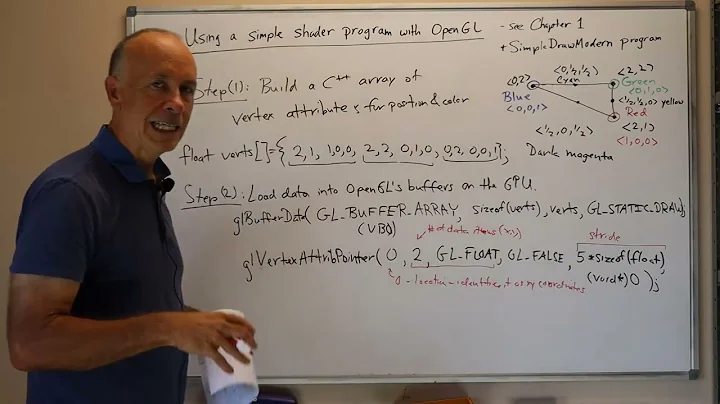 Using a simple shader program with OpenGL
- see Chapter 1
+ SimpleDrawModern program
Step(1): Build a C++ array of
vertex attributes for position & color
float verts[]={ 2,1, 1,0,0, 2,2, 0,1,0, 0,2, 0,0,1};
<0,½,½>
Cyan
<2,2>
Green
<0,1,0>
<0,2>
Blue
<0,0,1>
<½,½,0> yellow
Red
<2,1>
<1,0,0>
<½,0,½>
Dark magenta
Step(2): Load data into OpenGL's buffers on the GPU.
glBufferData( GL_BUFFER_ARRAY, sizeof(verts), verts, GL_STATIC_DRAW);
(VBO)
# of data items (x,y)
stride
glVertexAttribPointer( 0, 2, GL_FLOAT, GL_FALSE, 5*sizeof(float),
(void*)0 );
0 - location - identifies it as xy coordinates